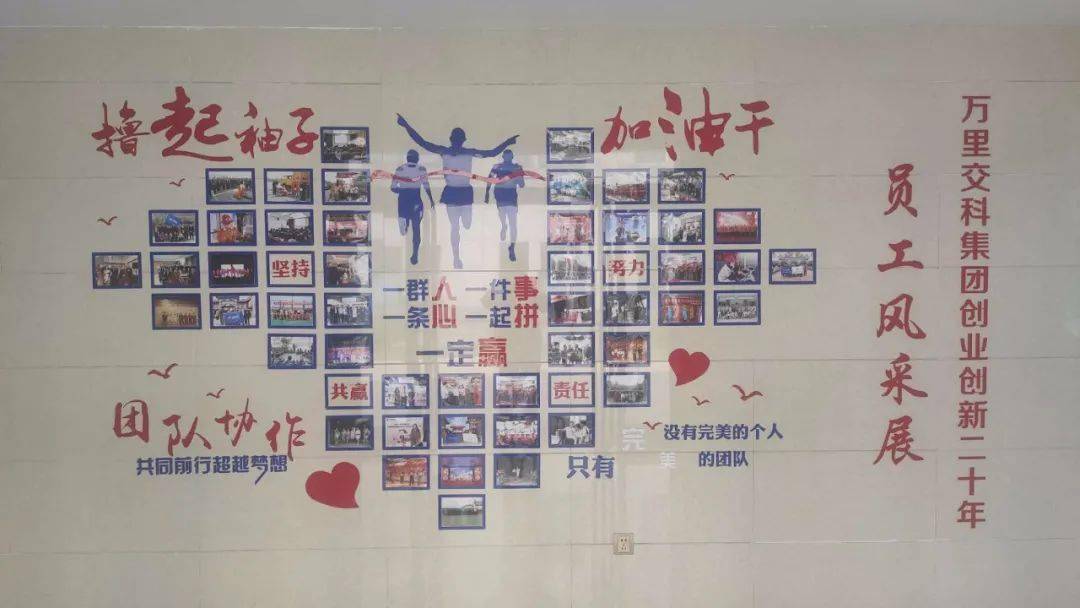 撸起袖子
加油干
坚持
努力
一群人 一件事
一条心 一起拼
一定赢
共赢
责任
团队协作
共同前行超越梦想
没有完美的个人
只有完美的团队
员工风采展
万里交科集团创业创新二十年